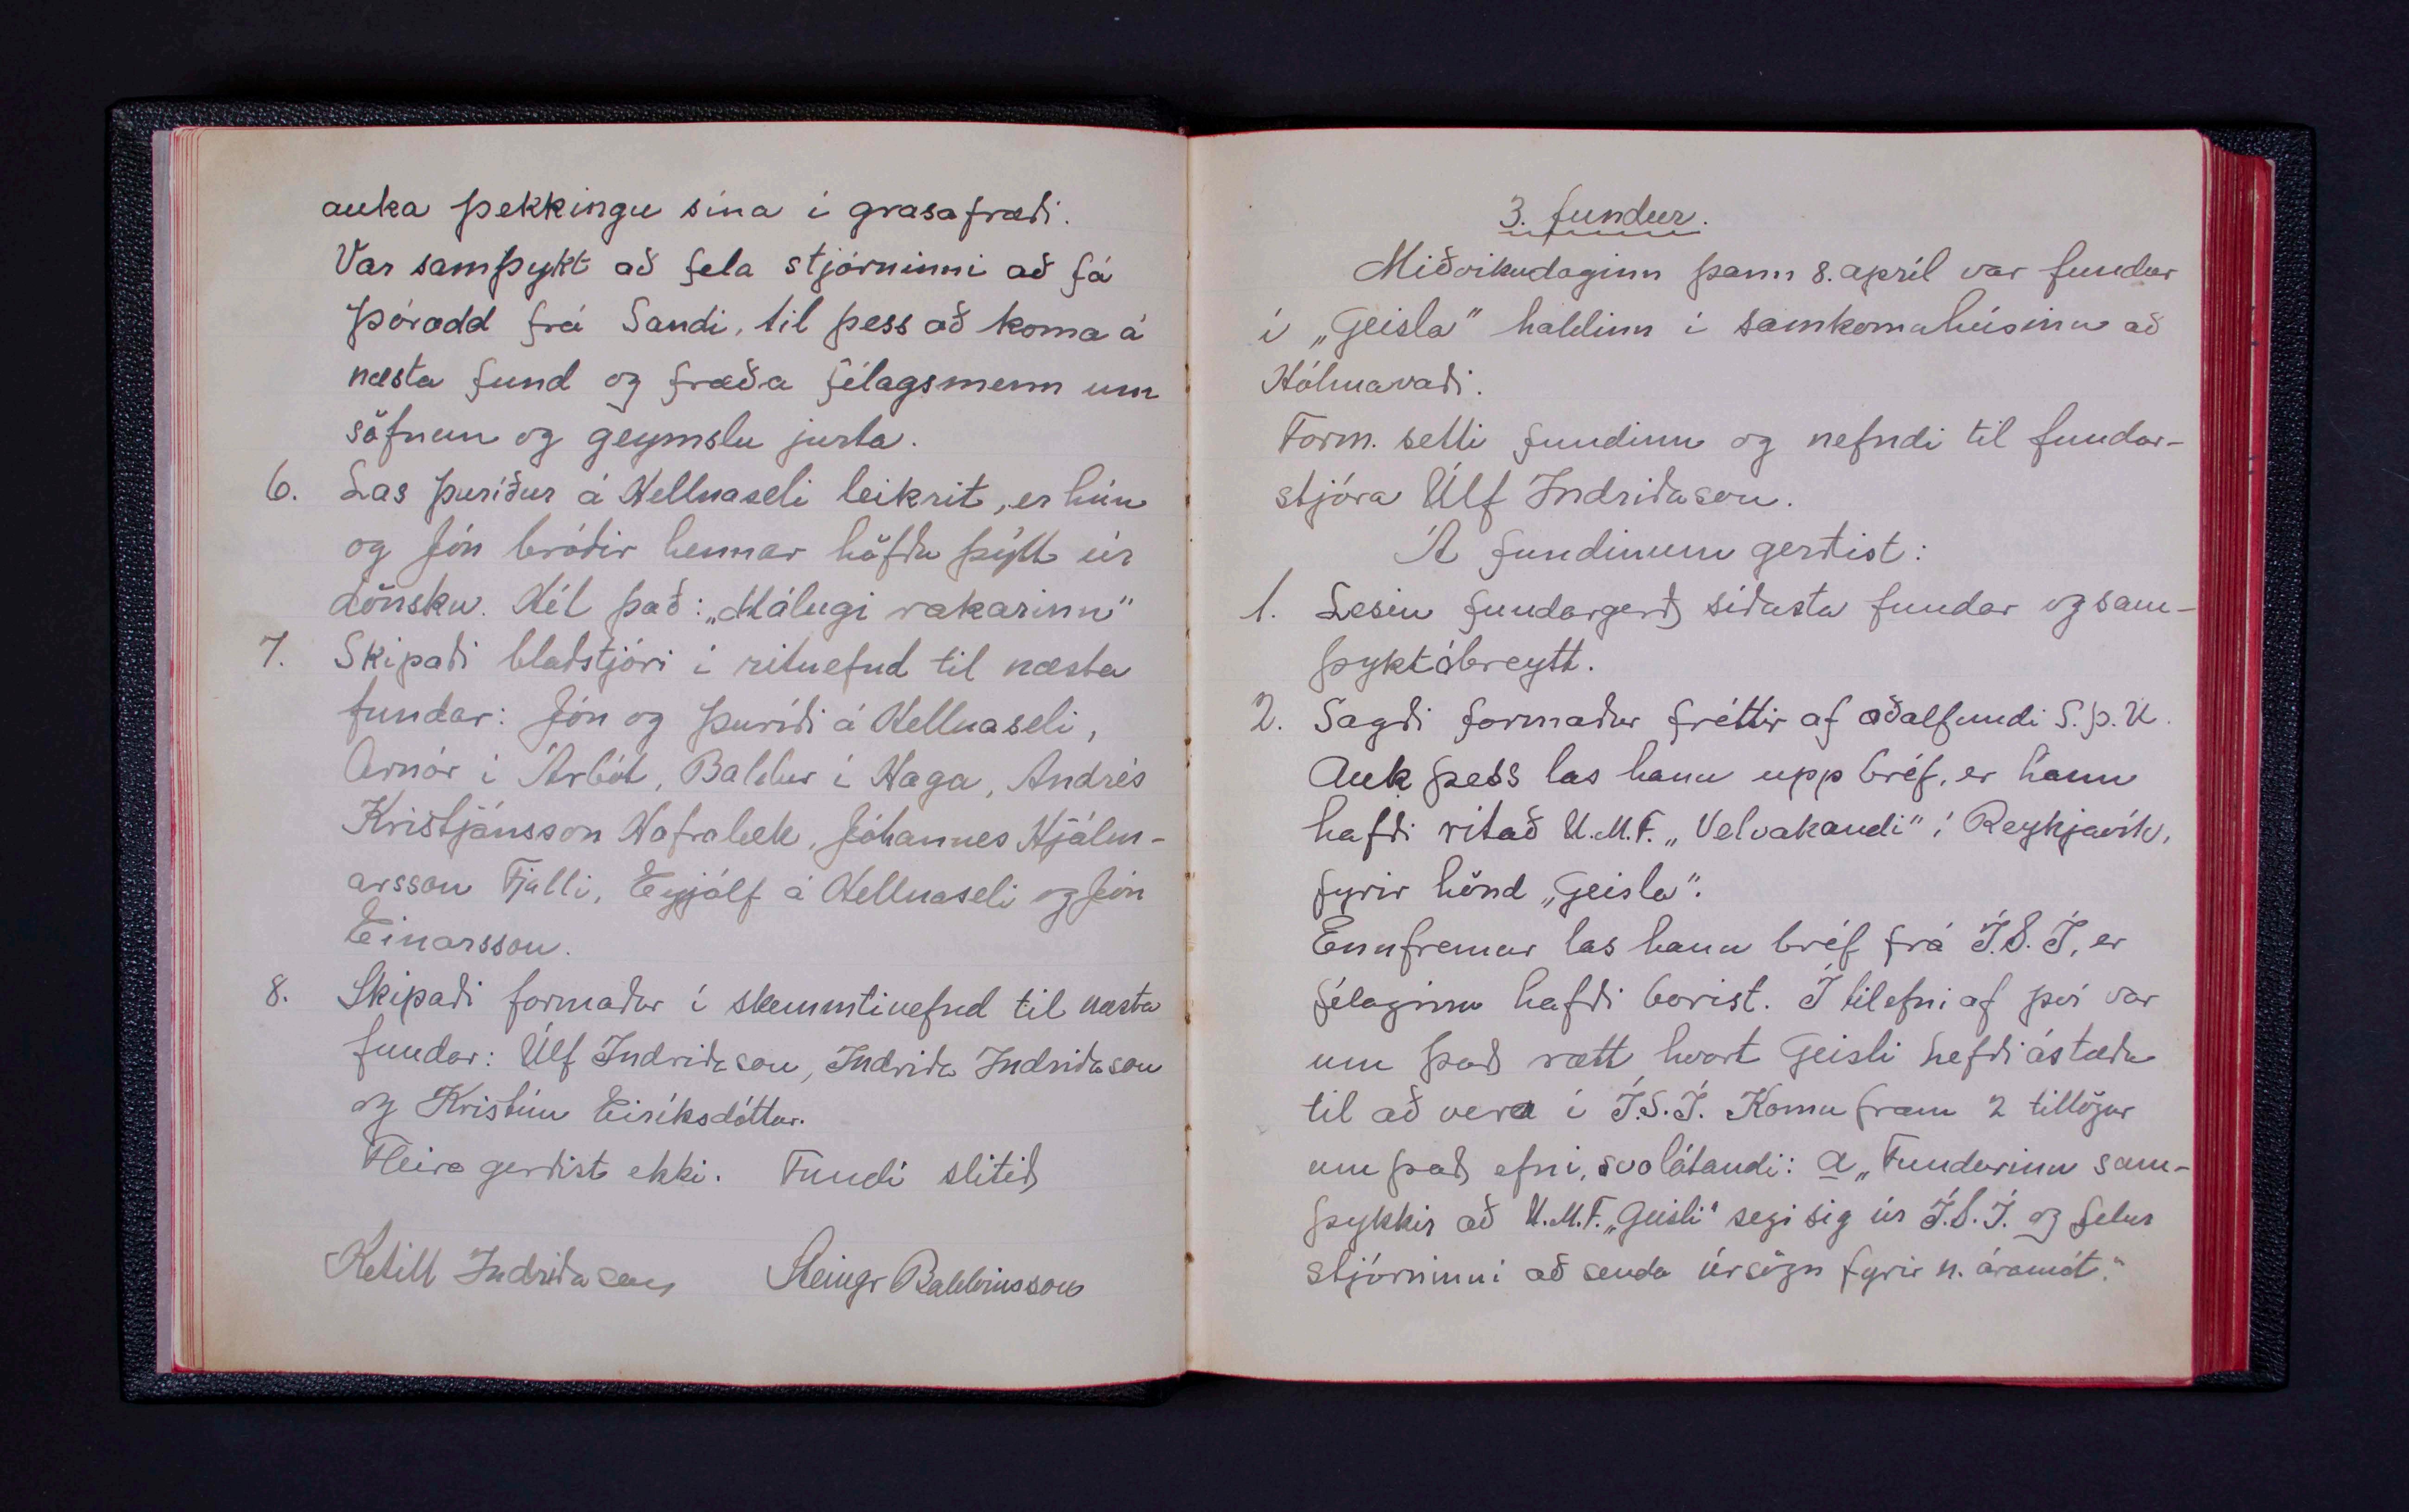 auka þekkingu sína í grasafræði.
Var samþykt að fela stjórninni að fá
Þórodd frá Sandi, til þess að koma á
næsta fund og fræða félagsmenn um
söfnun og geymslu jurta.
6. Las Þuríður á Hellnaseli leikrit, er hún
og Jón bróðir hennar höfðu þýtt úr
dönsku. Hét það: „Málugi rakarinn"
7. Skipaði blaðstjóri í ritnefnd til næsta
fundar: Jón og Þuríði á Hellnaseli,
Arnór í Árbót, Baldur í Haga, Andrés
Kristjánsson Hafralæk, Jóhannes Hjálm-
arsson Fjalli, Eyjólf á Hellnaseli og Jón
Einarsson.
8. Skipaði formaður í skemmtinefnd til næsta
fundar: Úlf Indriðason, Indriða Indriðason
og Kristínu Eiríksdóttur.
Fleira gerðist ekki. Fundi slitið
Ketill Indriðason Steingr Baldvinsson
3. fundur.
Miðvikudaginn þann 8. apríl var fundur
í „Geisla" haldinn í samkomuhúsinu að
Hólmavaði.
Form. setti fundinn og nefndi til fundar-
stjóra Úlf Indriðason.
Á fundinum gerðist:
1. Lesin fundargerð síðasta fundar og sam-
þykt óbreytt.
2. Sagði formaður fréttir af aðalfundi S.Þ.U.
Auk þess las hann upp bréf, er hann
hafði ritað U.M.F. „Velvakandi" í Reykjavík,
fyrir hönd „Geisla".
Ennfremur las hann bréf frá Í.S.Í, er
félaginu hafði borist. Í tilefni af því var
um það rætt hvort Geisli hefði ástæðu
til að vera í Í.S.Í. Komu fram 2 tillögur
um það efni, svolátandi: a „Fundurinn sam-
þykkir að U.M.F. „Geisli" segi sig úr Í.S.Í. og felur
stjórninni að senda úrsögn fyrir n. áramót."